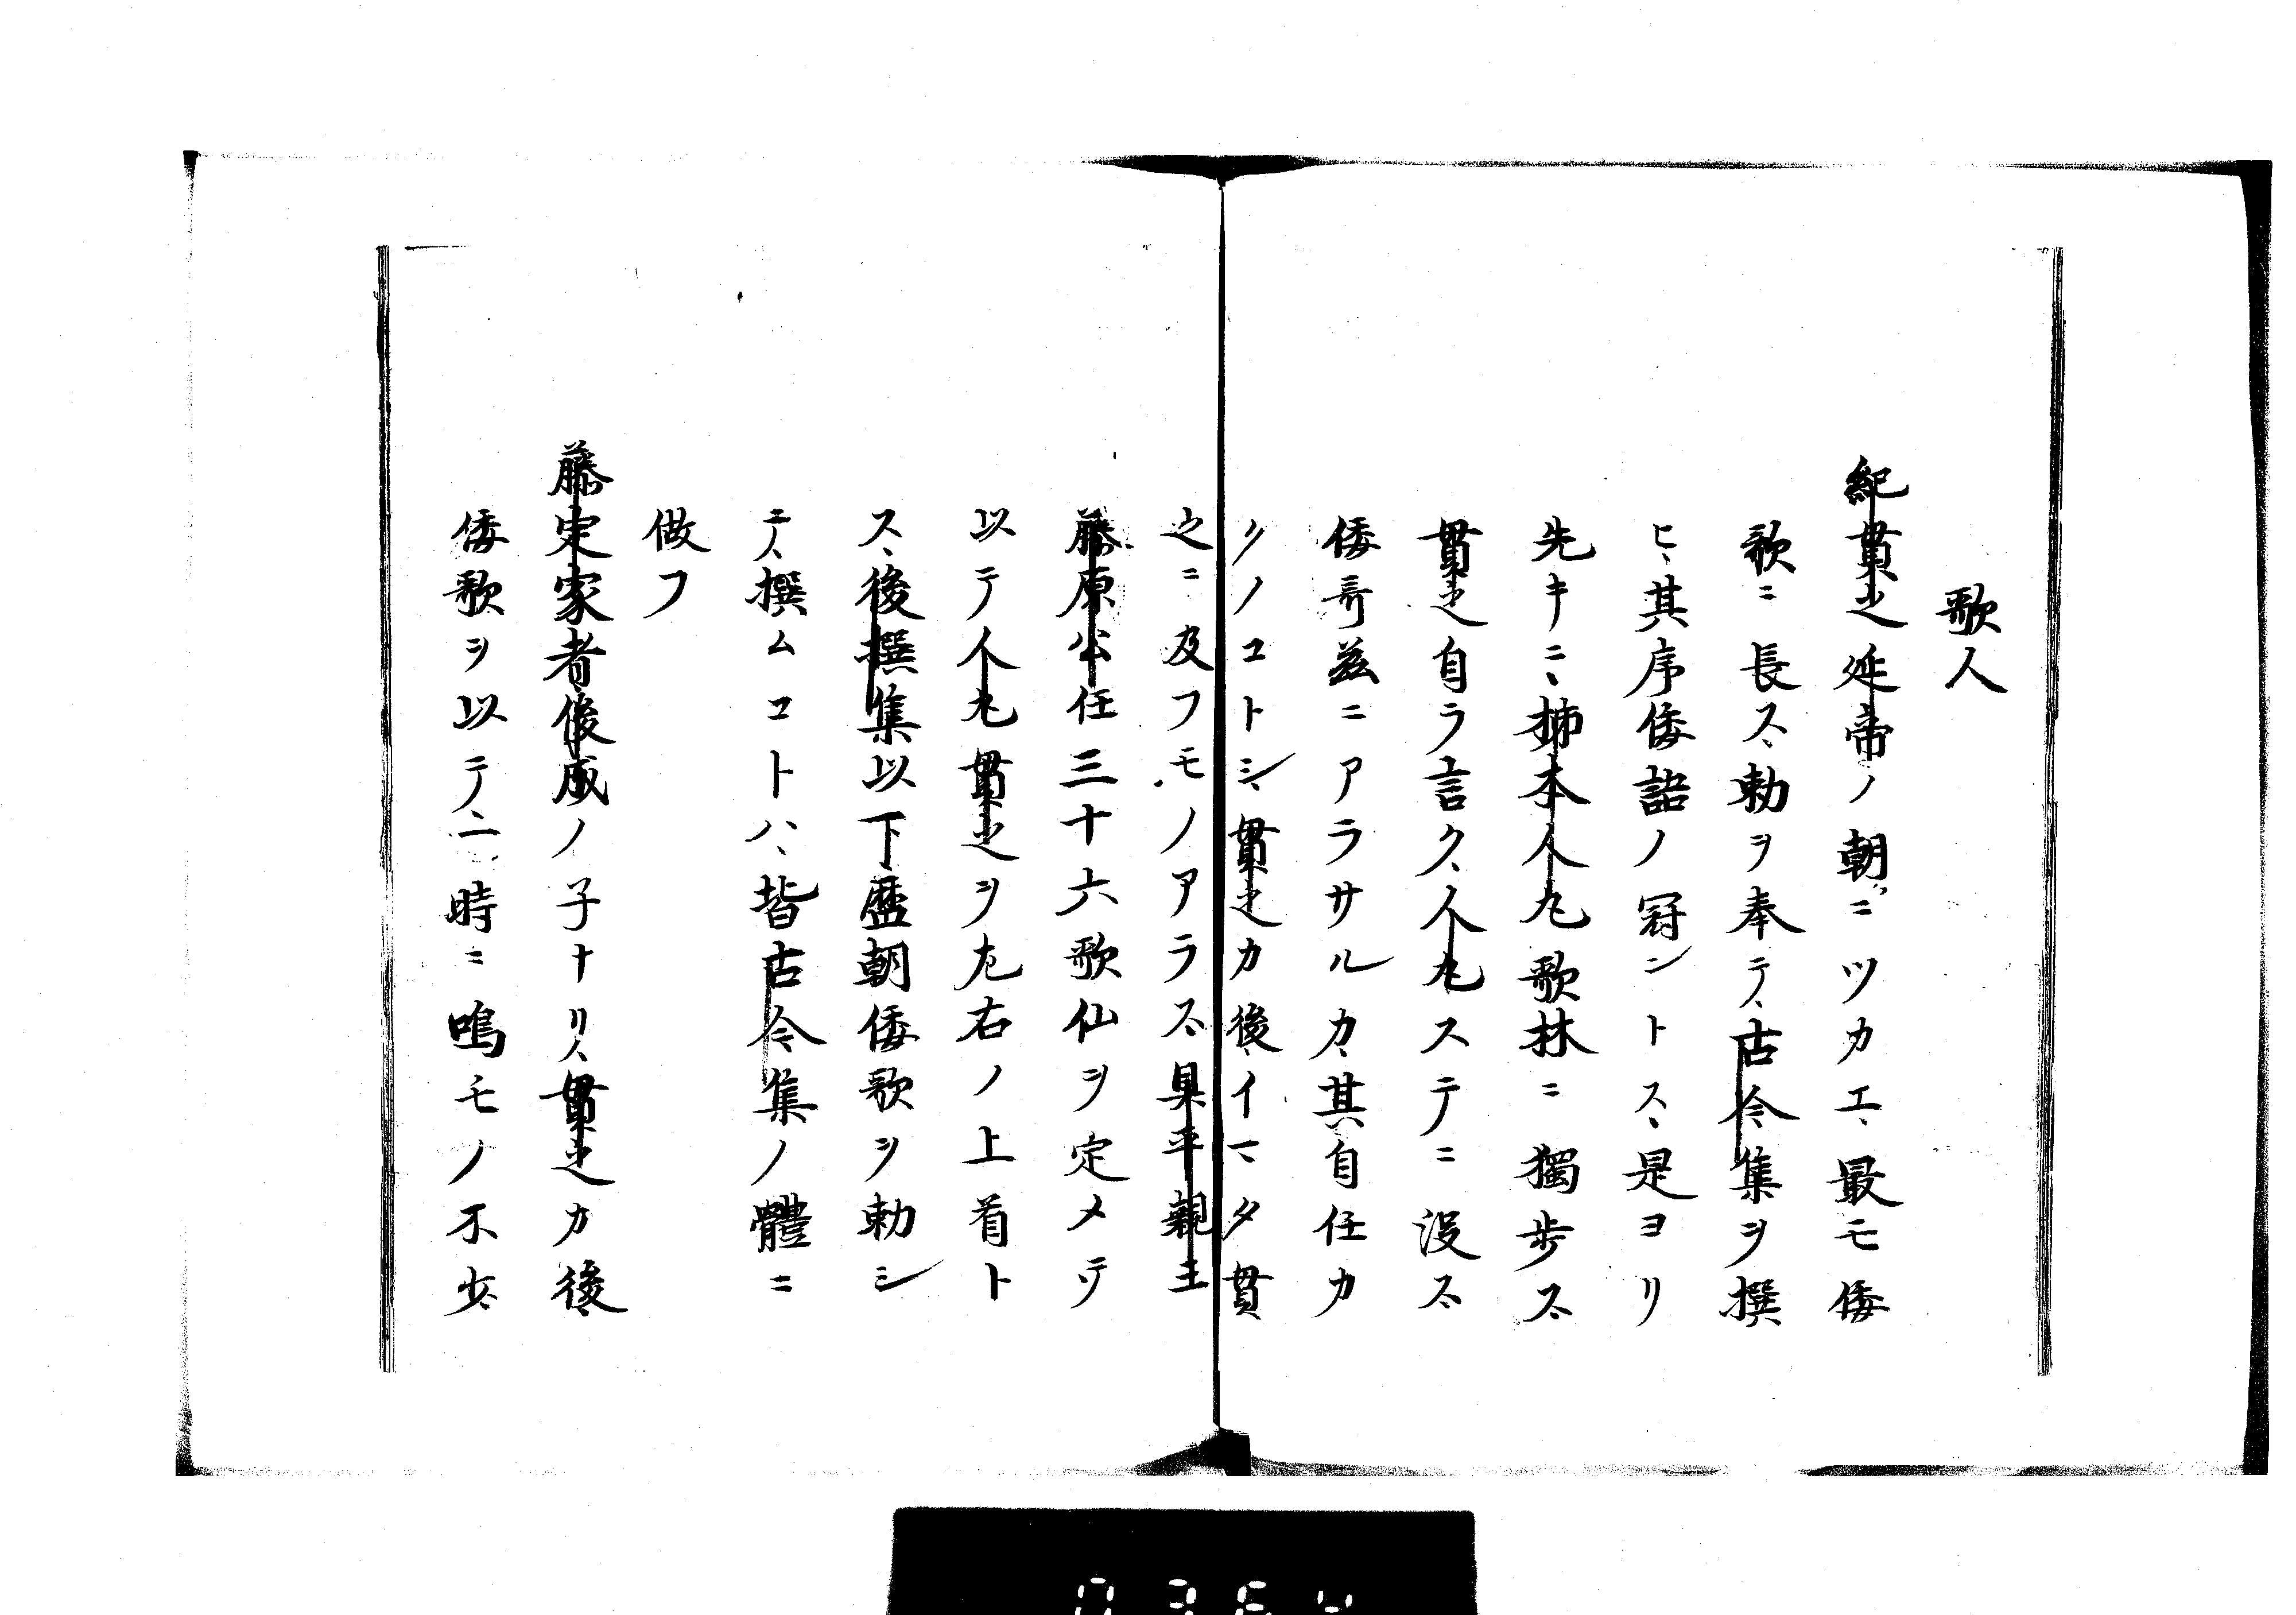 歌人
紀貫之延帝ノ朝ニツカエ、最モ倭
歌ニ長ス、勅ヲ奉テ、古今集ヲ撰
ヒ、其序倭語ノ冠ントス、是ヨリ
先キニ、柿本人丸歌林ニ獨歩ス、
貫之自ラ言ク、人丸ステニ没ス、
倭哥茲ニアラサルカ、其自任カ
クノコトシ、貫之カ後、イマタ貫
之ニ及フモノアラス、具平親王
藤原公任三十六歌仙ヲ定メテ
以テ人丸貫之ヲ左右ノ上首ト
ス、後撰集以下歴朝倭歌ヲ勅シ
テ、撰ムコトハ、皆古今集ノ體ニ
倣フ
藤定家者俊成ノ子ナリ、貫之カ後、
倭歌ヲ以テ一時ニ鳴モノ不少、